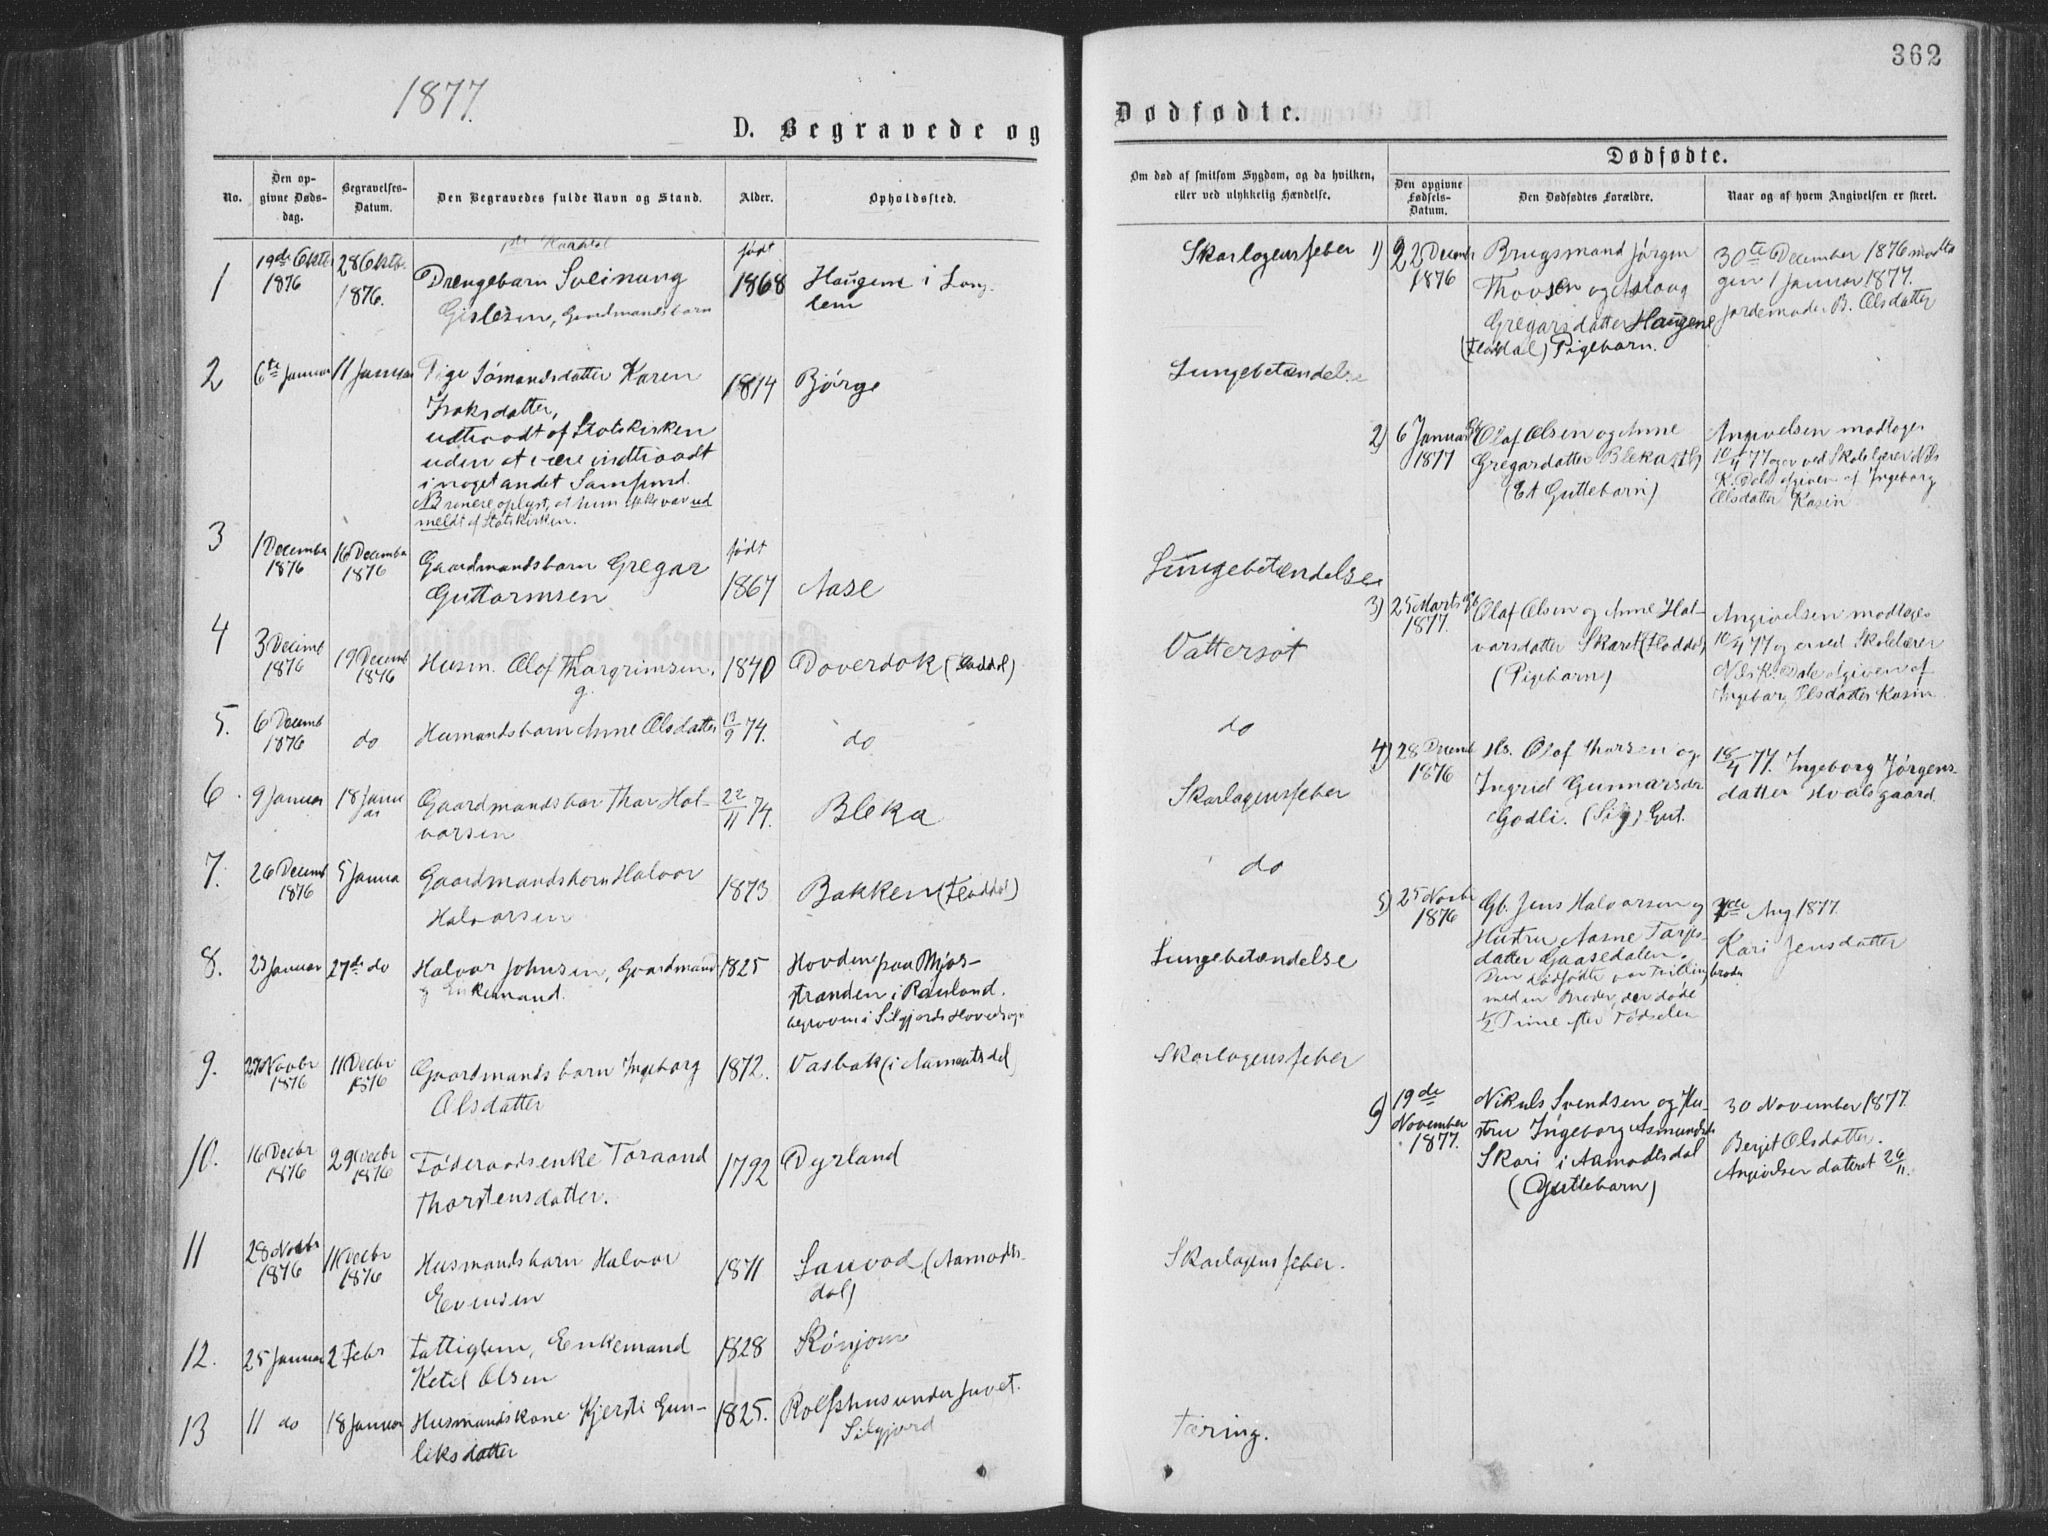 362
1877.
D. Begravede og
Dødfødte.
No.
Den opgivne Dødsdag.
Begravelses-Datum.
Den Begravedes fulde Navn og Stand.
Alder.
Opholdssted.
Om død af smitsom Sygdom, og da hvilken,
eller ved ulykkelig Hændelse.
Dødfødte.
Den opgivne Fødsels-Datum.
Den Dødfødtes Forældre.
Naar og af hvem Angivelsen er skeet.
1
19de
1876
28
1876.
Drengebarn Sveinung
Gislesen, Gaardmandsbarn
født
1868
Haugene i
Skarlagensfeber
2
6te Januar
11 Januar
Pige Sømandsdatter Karen
Isaksdatter,
udtraadt af Statskirken
uden at være indtraadt
i noget andet Samfund.
NB senere oplyst, at hun ikke var ud
meldt af Statskirken.
1814
Bjørge
Lungebetændelse
3
1 December
1876
16 December
1876
Gaardmandsbarn Gregar
Guttormsen
født
1867
Aase
Lungebetændelse
4
3 Decemb
1876
19 Decemb
1876
Husm. Olof Thorgrimsen.
1840
Doverdok (Fladdal)
Vattersot
5.
6 Decemb
1876
do
Husmandsbarn Anne Olsdatter
74.
do
do
6.
9 Januar
18 Januar
Gaardmandsbar Thor Hal-
vorsen
22/11 74.
Bleka
Skarlagensfeber
7.
26 Decemb
1876
5 Janua
Gaardmandsbarn Halvor
Halvorsen
1873
Bakken (Fladdal)
do
8.
23 Januar
27de do
Halvor Johnsen, Gaardmand
og Enkemand.
1825
Hovden paa Mjøs-
stranden i Rauland.
begraven i Silgjords Hovedsogn
Lungebetændelse
9.
27 Novbr
1876
11 Decbr
1876
Gaardmandsbarn Ingeborg
Olsdatter
1872.
Vasbak (i Aamotsdal
Skarlagensfeber
10.
16 Decbr
1876
29 Decbr
1876
Føderaadsenke Toraand
Thorstensdatter.
1792
Dyrland
11
28 Novbr
1876
11 Decbr
1876
Husmandsbarn Halvor
Evensen
1871
(Aamodts-
dal)
Skarlagensfeber.
12.
25 Januar
2 Febr
Fattiglem, Enkemand
Ketil Olsen
1828
13
11 do
18 Januar
Husmandskone Kjersti Gun-
leiksdatter
1825.
Rolfshus under Juvet.
Silgjord
Tæring.
1)
22 Decemb
1876
Brugsmand Jørgen
Thovsen og Aslaug
Gregarsdatter Haugene
(Fladdal) Pigebarn.
30te December 1876 modta
gen 1 Januar 1877.
Jordemoder B. Olsdatter
2)
6 Januar
1877
Olaf Olsen og Anne
Gregardatter Bleka
(Et Guttebarn)
Angivelsen modtoges
10/4 77 og er ved Skolelærer Nils
K. Dale afgiven af Ingeborg
Olsdatter Kasin
3)
25 Marts
1877.
Olaf Olsen og Anne Hal-
vorsdatter Skaret (Fladdal)
(Pigebarn)
Angivelsen modtoges
10/4 77 og er ved Skolelærer
Nils K. Dale afgiven af
Ingeborg Olsdatter Kasin
4)
28 Decemb
1876
Hs. Olof Thorsen og
Ingrid Gunnarsdr
Godli. (Silg) Gut.
18/4 77. Ingeborg Jørgens-
datter Hvalsgaard.
5)
25 Novbr
1876
Gb. Jens Halvorsen og
Hustru Aasne Tarjes-
datter Gaasedalen.
Den Dødfødte var Tvillingbroder
med en Broder, der døde
1/2 Time efter Fødselen
Aug 1877.
Kari Jensdatter
6)
19de
November
1877.
Nikuls Svendsen og Hu-
stru Ingeborg Asmundsdr
Skori i Aamodtsdal
(Guttebarn)
30 November 1877.
Bergit Olsdatter.
Angivelsen dateret 26/11.